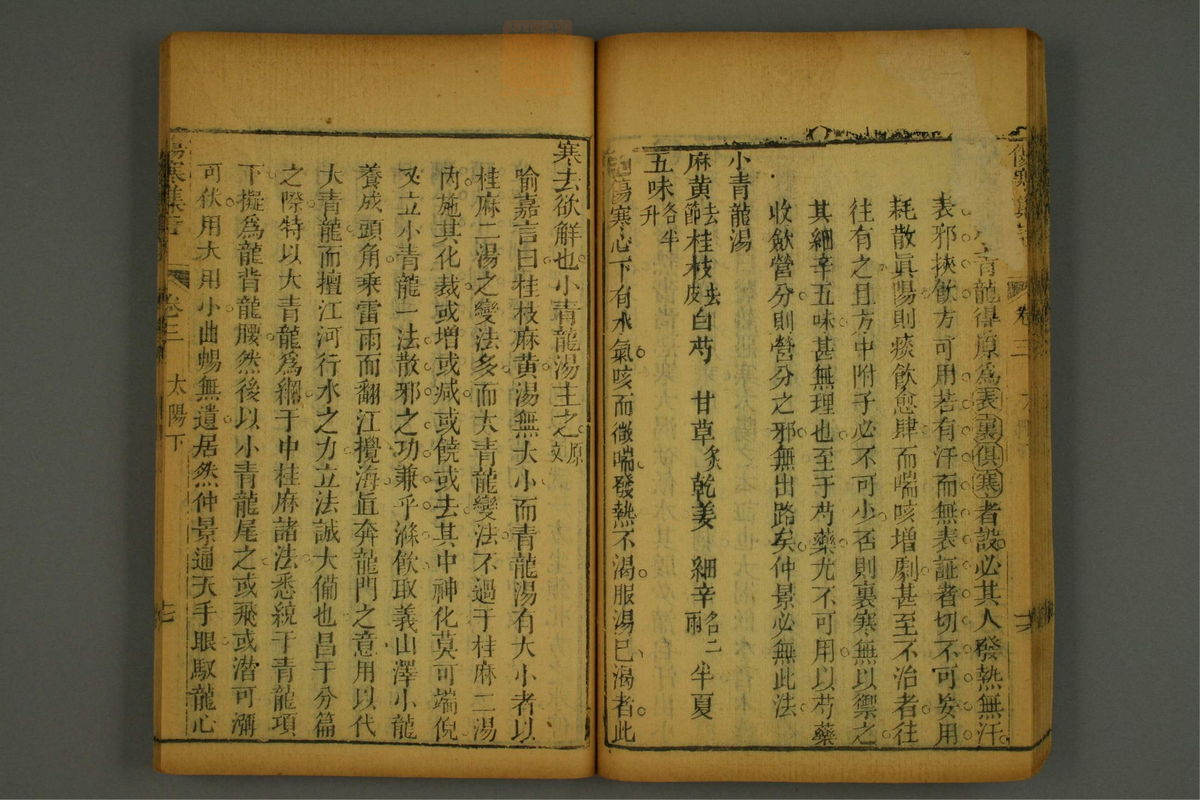 小青龍得原為表裏俱寒者設必其人發熱無汗
表邪挾飲方可用若有汗而無表証者切不可妄用
耗散眞陽則痰飲愈肆而喘咳增劇甚至不治者往
往有之且方中附子必不可少否則裏寒無以禦之
其細辛五味甚無理也至于芍藥尤不可用以芍藥
收斂營分則營分之邪無出路矣仲景必無此法
小青龍湯
麻黄去節 桂枝去皮 白芍 甘草炙 乾姜 細辛各二兩 半夏
五味各半升
傷寒心下有水氣咳而微喘發熱不渴服湯已渴者此
寒去欲解也小青龍湯主之原文
喻嘉言曰桂枝麻黄湯無大小而青龍湯有大小者以
桂麻二湯之變法多而大青龍變法不過于桂麻二湯
内施其化裁或增或減或饒或去其中神化莫可端倪
又立小青龍一法散邪之功兼乎滌飲取義山澤小龍
養成頭角乘雷雨而翻江攪海直奔龍門之意用以代
大青龍而擅江河行水之力立法誠大備也昌于分篇
之際特以大青龍爲綱于中桂麻諸法悉統于青龍項
下擬爲龍背龍腰然後以小青龍尾之或飛或潜可瀰
可伏用大用小曲暢無遺居然仲景通天手眼馭龍心
傷寒集
卷三
太陽下